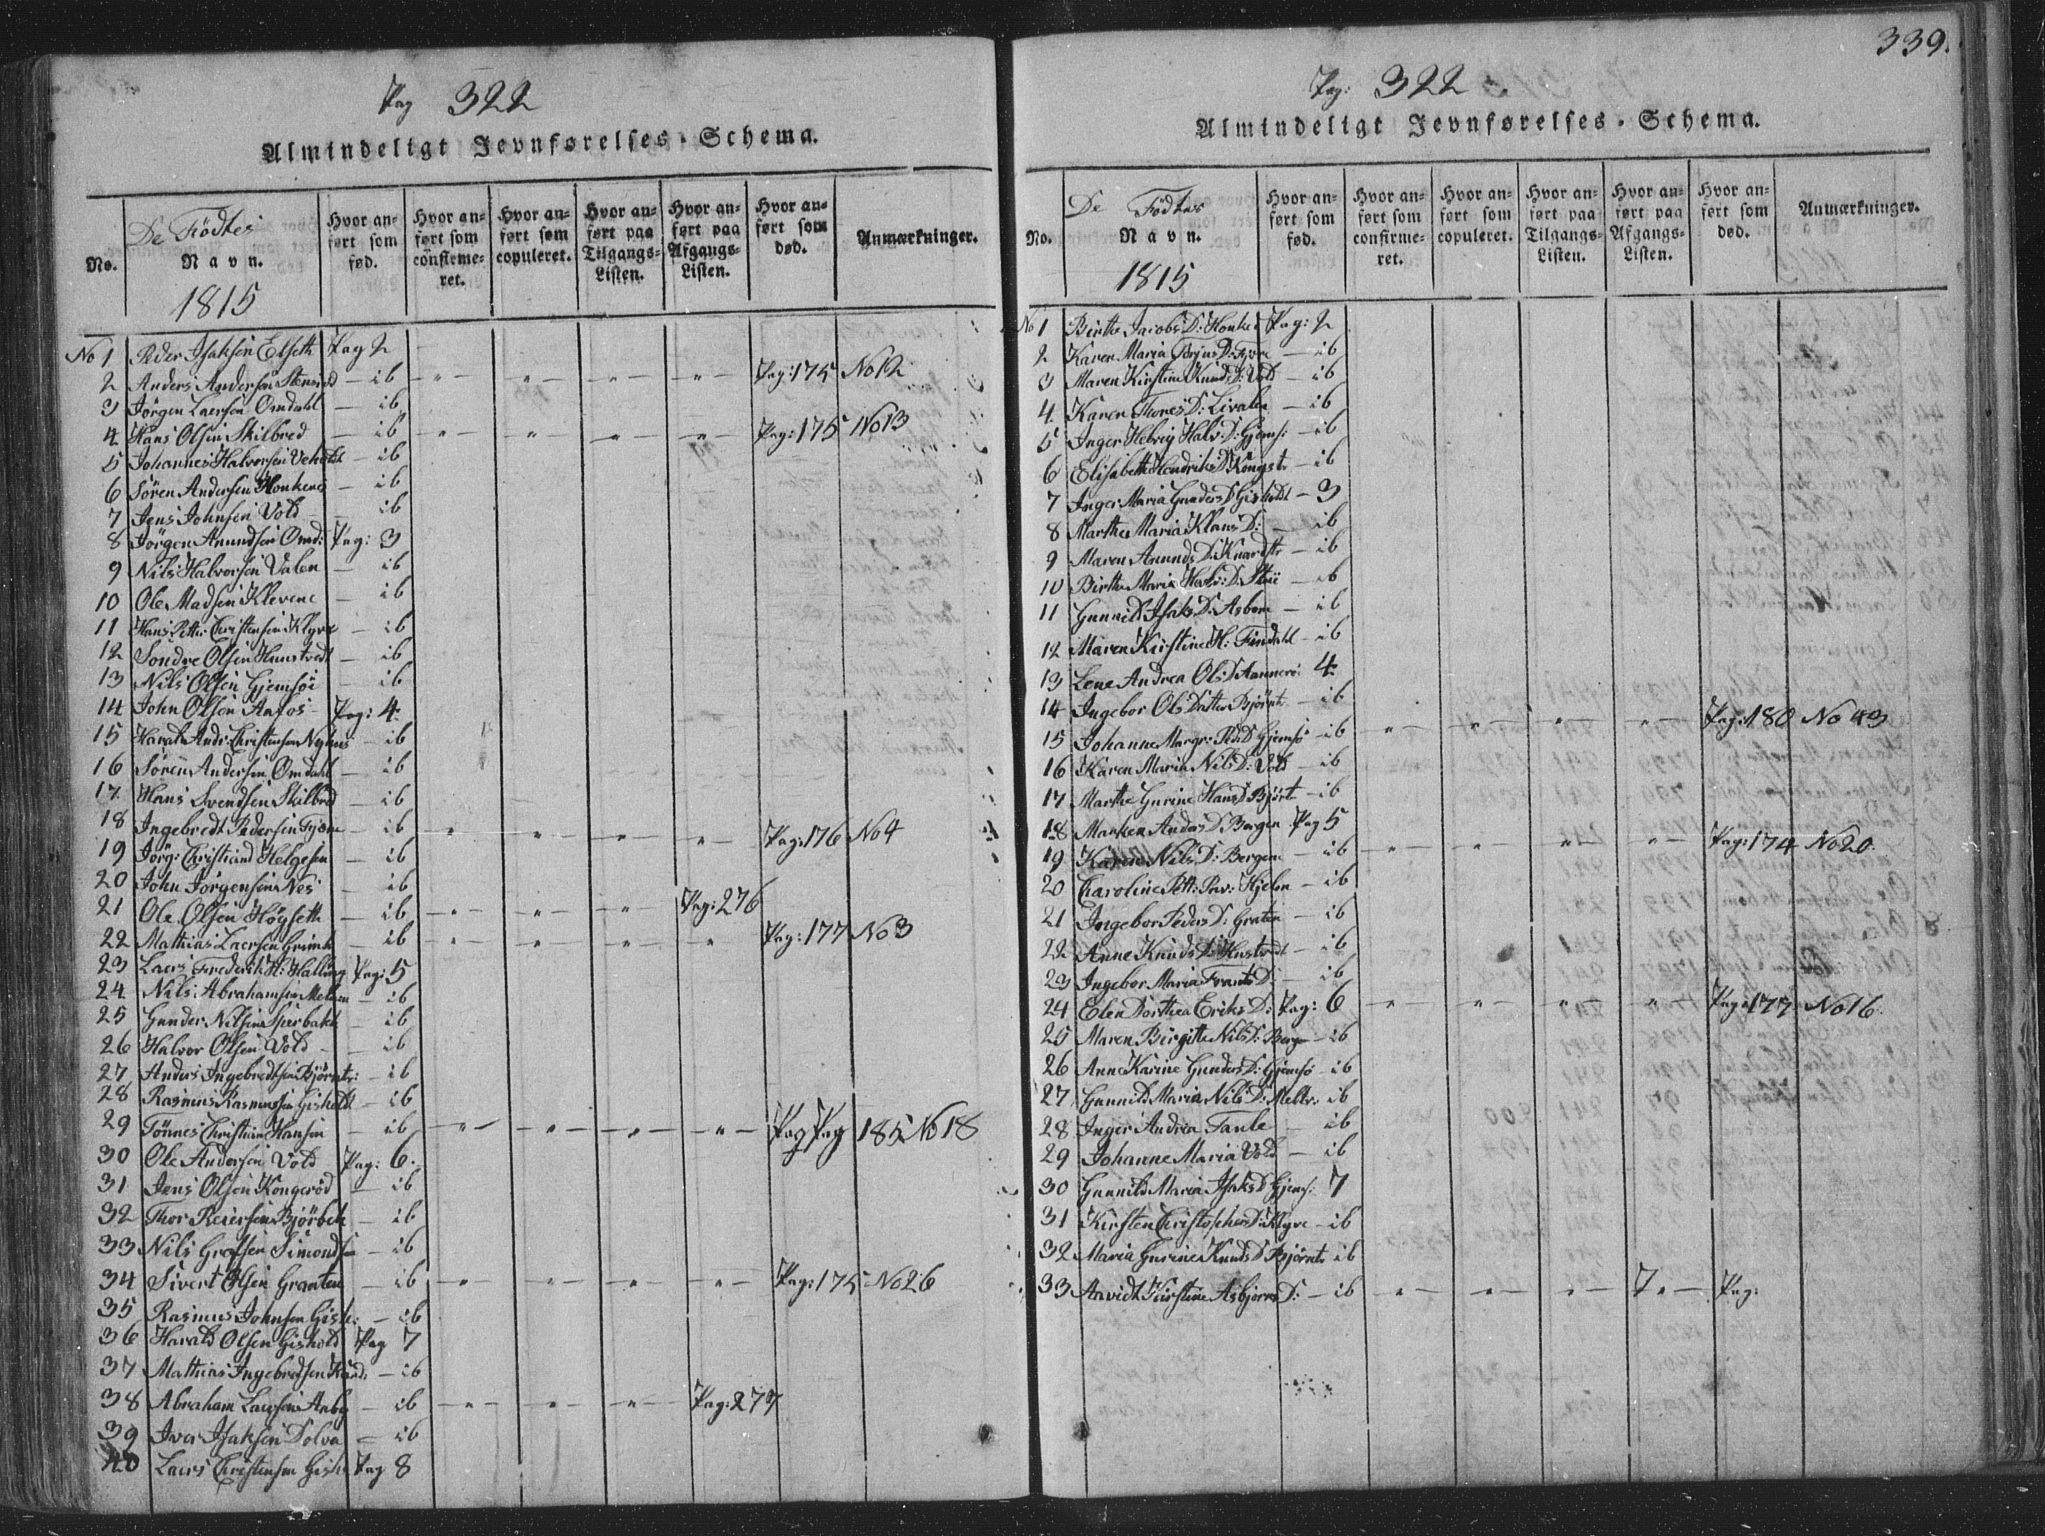 Pag 322
Almindeligt Jevnførelses-Schema.
No.
De Födtes
Navn.
1815
Hvor anført som fød.
Hvor anført som confirmeret.
Hvor anført som copuleret.
Hvor anført paa Tilgangs-Listen.
Hvor anført paa Afgangs-Listen.
Hvor anført som død.
Anmærkninger.
No 1 Peder Isaksen Elseth Pag 2
2 Anders Andersen - ib - " - " - " - " - Pag: 175 No 12
3 Jörgen Laersen Omdahl - ib
4 Hans Olsen Skilbred - ib - " - " - " - " - Pag: 175 No 13
5 Johannes Halvorsen - ib
6 Sören Andersen Honkene - ib
7 Jens Johnsen Vold - ib
8 Jörgen Amundsen Omd: Pag: 3
9 Nils Halvorsen Valen - ib
10 Ole Madsen Klevene - ib
11 Hans Petter Christensen Klyve - ib
12 Sondre Olsen Hunstvedt - ib
13 Nils Olsen Gjemsöi - ib
14 John Olsen Aafos Pag: 4
15 Harald Andr: Christensen Nyhus - ib
16 Sören Andersen Omdahl - ib
17 Hans Svendsen Skilbred - ib
18 Ingebredt Pedersen - ib - " - " - " - " - Pag: 176 No 4
19 Jörg: Christiand Helgesen - ib
20 John Jörgensen Nes - ib
21 Ole Olsen Höyseth - ib - " - " - " - Pag: 276
22 Mathias Laersen - ib - " - " - " - " - Pag: 177 No 3
23 Laers Frederik H: Halling Pag: 5
24 Nils Abrahamsen - ib
25 Gunder Nilsen - ib
26 Halvor Olsen Vold - ib
27 Anders Ingebredtsen Björnt: - ib
28 Rasmus Rasmussen Gisholdt - ib
29 Tönnes Christian Hansen - ib - " - " - " - " - Pag Pag 185 No 18
30 Ole Andersen Vold Pag: 6.
31 Jens Olsen Kongeröd - ib
32 Thor Reiersen Björbek - ib
33 Nils Simonds - ib
34 Sivert Olsen Graaten - ib - " - " - " - " - Pag: 175 No 26
35 Rasmus Johnsen Gish: - ib
36 Harald Olsen Gishold Pag 7
37 Mathias Ingebredtsen - ib
38 Abraham Laersen - ib - " - " - " - Pag: 277
39 Iver Isaksen Dolva - ib
40 Laers Christensen Gish: Pag 8
339.
Pag: 322
Almindeligt Jevnførelses-Schema.
No.
De Födtes
Navn.
1815
Hvor anført som fød.
Hvor anført som confirmeret.
Hvor anført som copuleret.
Hvor anført paa Tilgangs-Listen.
Hvor anført paa Afgangs-Listen.
Hvor anført som død.
Anmærkninger.
No 1 Birthe Jacobs D: Honke Pag: 2
2 Karen Maria - ib
3 Maren Kirstine Knuds D: Vold - ib
4 Karen Thores D: - ib
5 Inger Helvig Halv: D: Gjems: - ib
6 Elisabeth Hendriks D - ib
7 Inger Maria Gunders D Gisholdt - 3
8 Marthe Maria Klaus D: - ib
9 Maren Amunds D: - ib
10 Birthe Maria - ib
11 Gunnild Isaks D: - ib
12 Maren Kirstine H: Findahl - ib
13 Lene Andrea Ols D 4
14 Ingebor Ols Datter Björnt - ib
15 Johanne Margr: Peds D Gjemsö - ib - " - " - " - " - Pag: 180 No 43
16 Karen Maria Nils D: Vold - ib
17 Marthe Gurine Hans D Björt - ib
18 Marken Anders D Bergen Pag 5
19 Karen Nils D: Bergen - ib - " - " - " - " - Pag: 174 No 20.
20 Caroline Pett: - ib
21 Ingebor Peders D: Graten - ib
22 Anne Knuds D: - ib
23 Ingebor Maria Frants D: - ib
24 Elen Dorthea Eriks D: Pag: 6 - " - " - " - " - Pag: 177 No 16.
25 Maren Birgitte Nils D: - ib
26 Anne Karine Gunders D: Gjemsö - ib
27 Gunnild Maria Nils D: - ib
28 Inger Andrea - ib
29 Johanne Maria Vold - ib
30 Gunnild Maria Isaks D Gjems: 7
31 Kirsten Christophers D: Klyve - ib
32 Maria Gurine Knuds D Björnt ib
33 Kirstine Asbjorns D: - ib - " - " - " - 7 " - Pag: